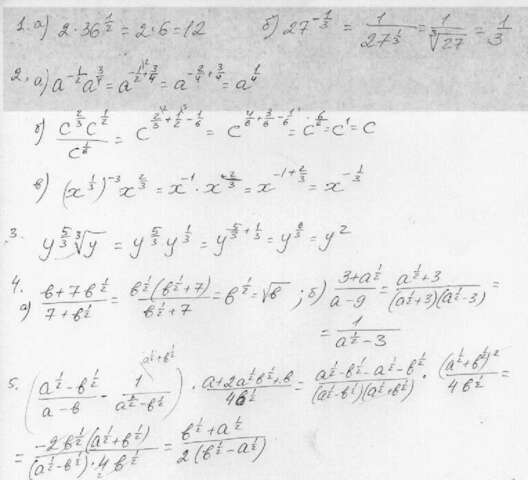 1. а) 2·36^{1/2} = 2·6 = 12   б) 27^{-1/3} = 1/27^{1/3} = 1/∛27 = 1/3
2. а) a^{-1/2} a^{3/4} = a^{-1/2+3/4} = a^{-2/4+3/4} = a^{1/4}
б) (c^{2/3} c^{1/2})/c^{1/6} = c^{2/3+1/2-1/6} = c^{4/6+3/6-1/6} = c^{6/6} = c^1 = c
в) (x^{1/3})^{-3} x^{2/3} = x^{-1} · x^{2/3} = x^{-1+2/3} = x^{-1/3}
3. y^{5/3} ∛y = y^{5/3} y^{1/3} = y^{5/3+1/3} = y^{6/3} = y^2
4. а) (в+7в^{1/2})/(7+в^{1/2}) = (в^{1/2}(в^{1/2}+7))/(в^{1/2}+7) = в^{1/2} = √в ; б) (3+a^{1/2})/(a-9) = (a^{1/2}+3)/((a^{1/2}+3)(a^{1/2}-3)) =
= 1/(a^{1/2}-3)
a^{1/2}+в^{1/2}
5. ((a^{1/2}-в^{1/2})/(a-в) - 1/(a^{1/2}-в^{1/2})) · (a+2a^{1/2}в^{1/2}+в)/(4в^{1/2}) = (a^{1/2}-в^{1/2}-a^{1/2}-в^{1/2})/((a^{1/2}-в^{1/2})(a^{1/2}+в^{1/2})) · (a^{1/2}+в^{1/2})^2/(4в^{1/2}) =
= (-2в^{1/2}(a^{1/2}+в^{1/2}))/((a^{1/2}-в^{1/2})·4в^{1/2}) = (в^{1/2}+a^{1/2})/(2(в^{1/2}-a^{1/2}))